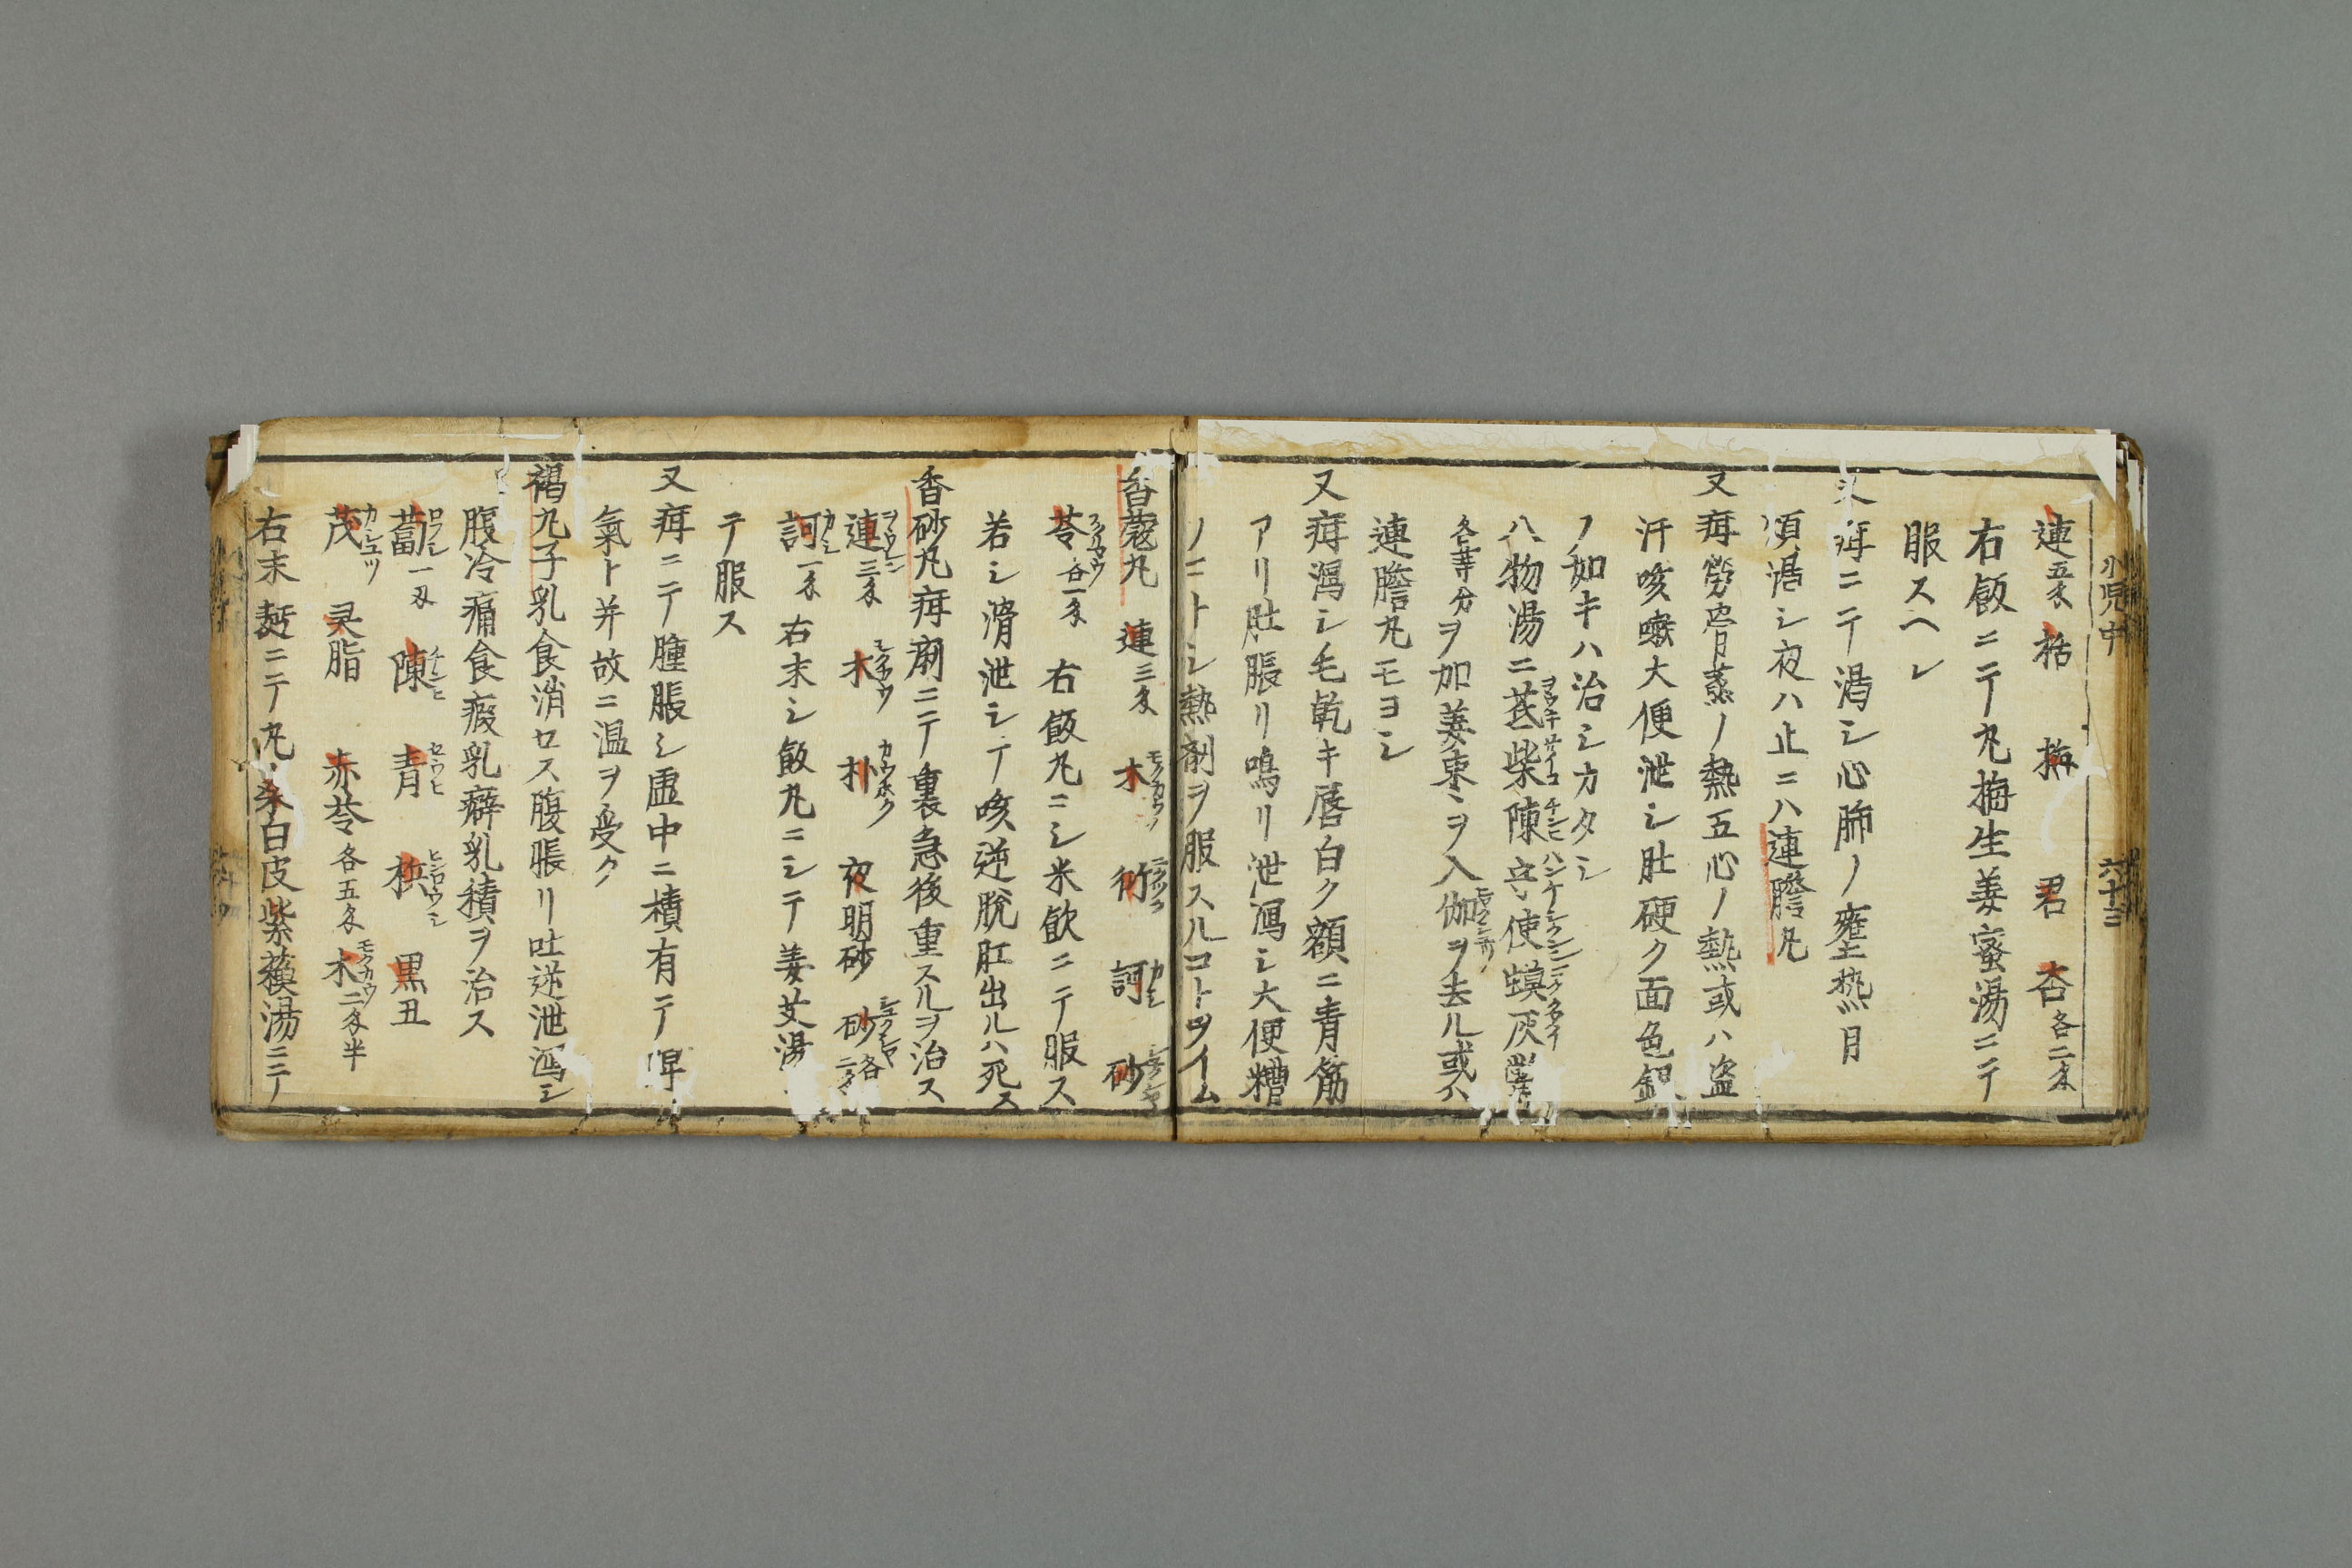 小児中 六十三
連五匁 栝 梅 君 杏各二匁
右飯ニテ丸梅生姜蜜湯ニテ
服スヘシ
又疳ニテ渇シ心肺ノ壅熱月
煩渇シ夜ハ止ニハ連膽丸
又疳勞骨蒸ノ熱五心ノ熱或ハ盗
汗咳嗽大便泄シ肚硬ク面色銀
ノ如キハ治シカタシ
八物湯ニ芪柴陳 使蟆灰鱉
各等分ヲ加姜棗ヲ入伽ヲ去ル或ハ
連膽丸モヨシ
又疳瀉シ毛乾キ唇白ク額ニ青筋
アリ肚脹リ鳴リ泄瀉シ大便糟
ノコトシ熱剤ヲ服スルコトヲイム
香蔻丸 連三匁 木 蔲 訶 砂
苓各一匁 右飯丸ニシ米飲ニテ服ス
若シ滑泄シテ咳逆脱肛出ルハ死ス
香砂丸疳痢ニテ裏急後重スルヲ治ス
連三匁 木 朴 夜明砂 砂各二匁
訶一匁 右末シ飯丸ニシテ姜艾湯
テ服ス
又疳ニテ腫脹シ虚中ニ積有テ
氣ト并故ニ温ヲ受ク
褐丸子乳食消セス腹脹リ吐逆泄瀉シ
腹冷痛食癥乳癖乳積ヲ治ス
蔔一匁 陳 青 梹 黒丑
茂 灵脂 赤苓各五匁 木二匁半
右末麪ニテ丸 桑白皮紫蘓湯ニテ